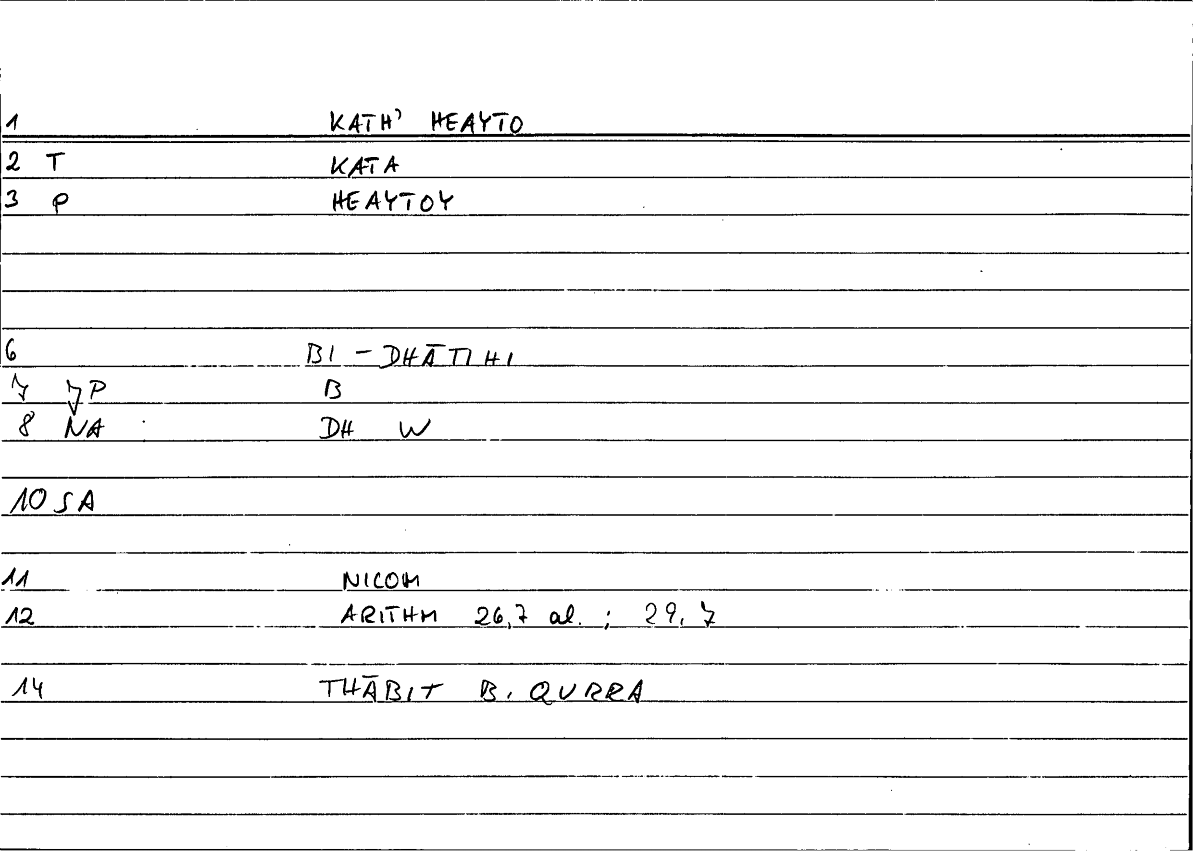 1 KATH' HEAYTO
2 T KATA
3 P HEAYTOY
6 BI - DHĀTIHI
7 JP B
8 NA DH W
10 SA
11 NICOM
12 ARITHM 26,7 al. ; 29,7
14 THĀBIT B. QURRA